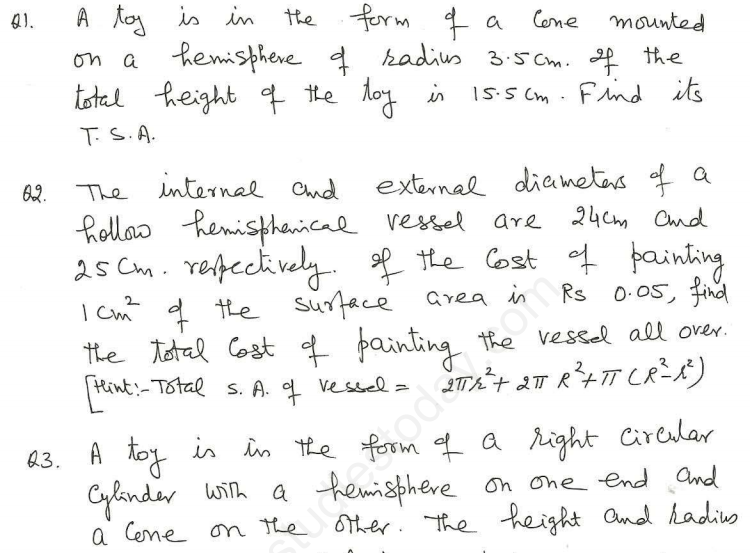 Q1. A toy is in the form of a Cone mounted
on a hemisphere of radius 3.5 cm. If the
total height of the toy is 15.5 cm. Find its
T. S. A.
Q2. The internal and external diameters of a
hollow hemispherical vessel are 24cm and
25 Cm. respectively. If the Cost of painting
1 cm² of the surface area is Rs 0.05, find
the total Cost of painting the vessel all over.
[Hint:- Total S. A. of vessel = 2πr² + 2π R² + π (R² - r²)
Q3. A toy is in the form of a right circular
Cylinder with a hemisphere on one end and
a Cone on the other. The height and radius
studiestoday.com